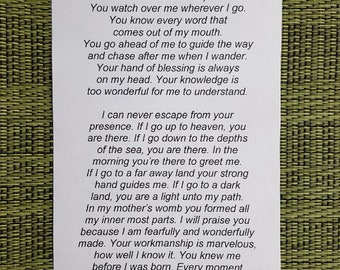 You watch over me wherever I go.
You know every word that
comes out of my mouth.
You go ahead of me to guide the way
and chase after me when I wander.
Your hand of blessing is always
on my head. Your knowledge is
too wonderful for me to understand.
I can never escape from your
presence. If I go up to heaven, you
are there. If I go down to the depths
of the sea, you are there. In the
morning you're there to greet me.
If I go to a far away land your strong
hand guides me. If I go to a dark
land, you are a light unto my path.
In my mother's womb you formed all
my inner most parts. I will praise you
because I am fearfully and wonderfully
made. Your workmanship is marvelous,
how well I know it. You knew me
before I was born. Every moment